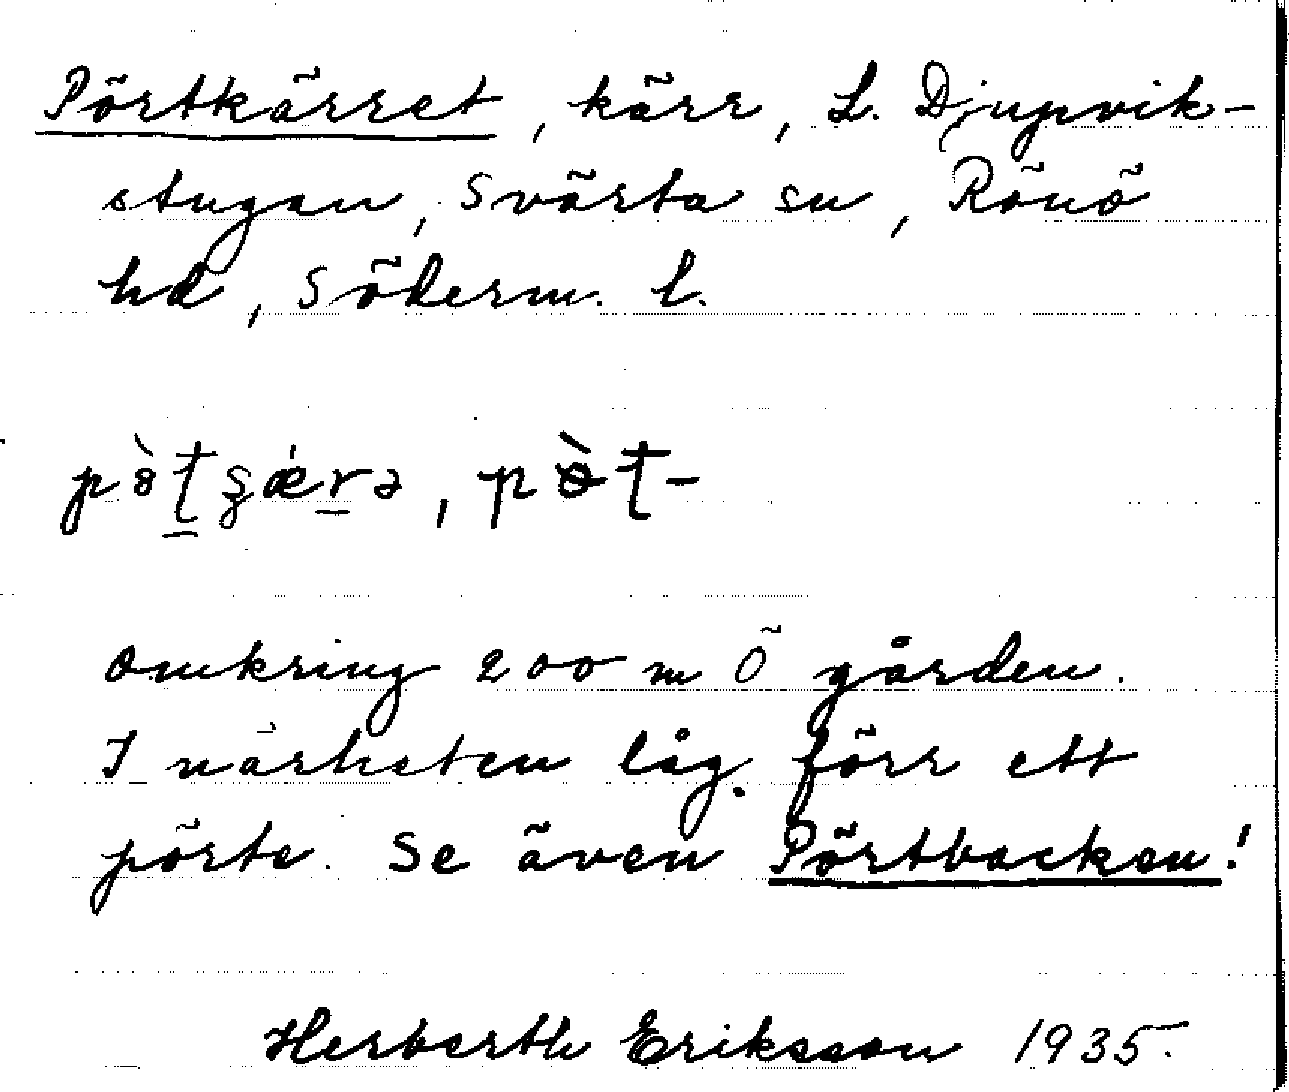 Pörtkärret, kärr, L. Djupvik-
stugan, Svärta sn, Rönö
hd, Söderm. l.
Omkring 200 m Ö gården.
I närheten låg förr ett
pörte. Se även Pörtbacken!
Herberth Eriksson 1935.